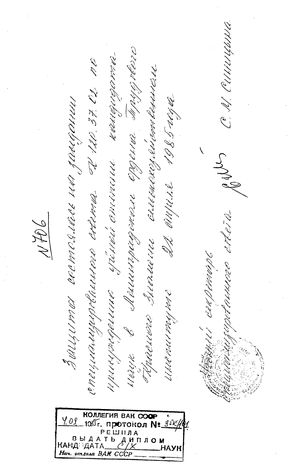 N706
Защита состоялась на заседании
специализированного совета К 120.37.02 по
присуждению учёной степени кандидата
наук в Ленинградском ордена Трудового
Красного Знамени сельскохозяйственном
институте 22 апреля 1985 года
Учёный секретарь
специализированного совета С.М. Синицына
КОЛЛЕГИЯ ВАК СССР
протокол №
РЕШИЛА
ВЫДАТЬ ДИПЛОМ
КАНДИДАТА С/Х НАУК
Нач. отдела ВАК СССР